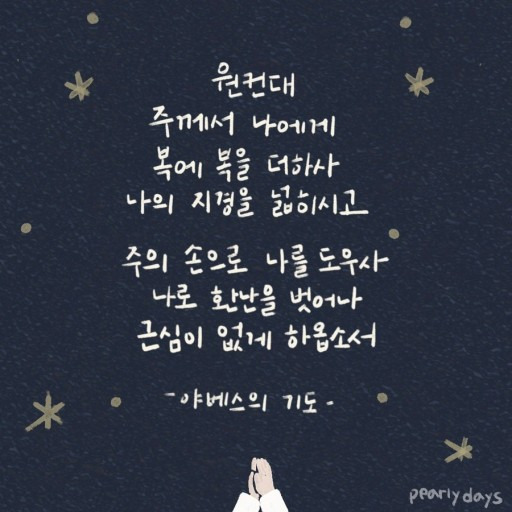 원컨대
주께서 나에게
복에 복을 더하사
나의 지경을 넓히시고
주의 손으로 나를 도우사
나로 환난을 벗어나
근심이 없게 하옵소서
-야베스의 기도-
pearly days